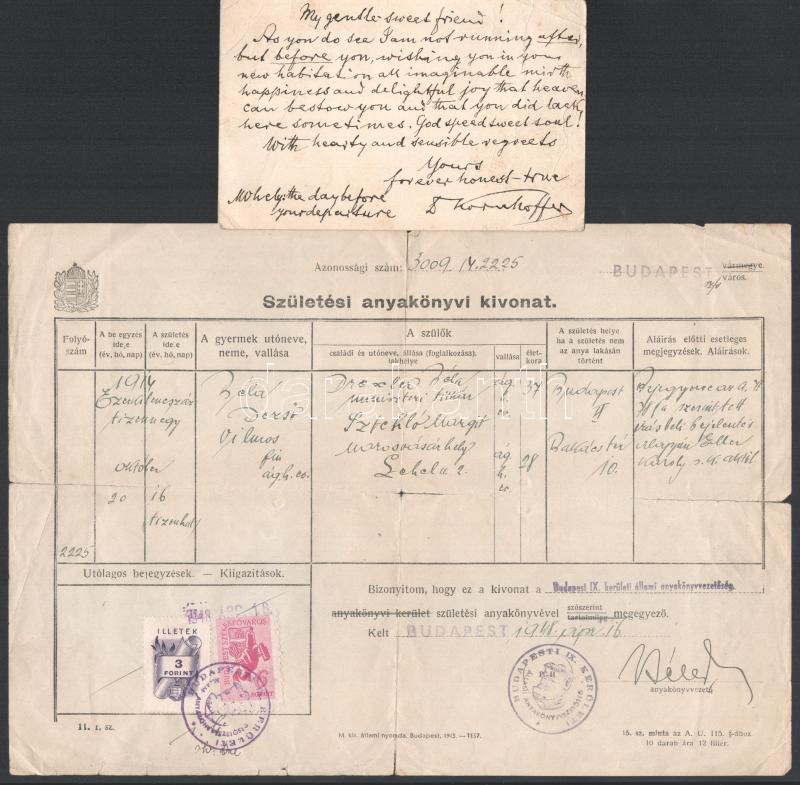 My gentle-sweet friend!
As you do see I am not running after,
but before you, wishing you in your
new habitation all imaginable mirth
happiness and delightful joy that heaven
can bestow you and that you did lack
here sometimes. God speed sweet soul!
With hearty and sensible regreets
Yours
forever honest-true
Mőhely: the day before
your departure
D Kornhoffer
Azonossági szám: 3009 14.2225
BUDAPEST vármegye.
város.
Születési anyakönyvi kivonat.
Folyó-
szám
A be egyzés
ide,e
(év, hó, nap)
A születés
ide,e
(év, hó, nap)
A gyermek utóneve,
neme, vallása
A szülők
családi és utóneve, állása (foglalkozása),
lakhelye
vallása
élet-
kora
A születés helye
ha a születés nem
az anya lakásán
történt
Aláírás előtti esetleges
megjegyzések. Aláírások.
1914
Ezerkilencszáz
tizennegy
október
20 16
tizenhat
2225
Béla
Dezső
Vilmos
fiú
ágh. ev.
Drexler Béla
miniszteri
Margit
Marosvásárhely
Lehel u 2.
ág.
h.
ev.
34
ág.
h.
ev.
28
Budapest
IX
Bakács tér
10.
írásbeli bejelentés
alapján
Károly s. k.
darabanth
Utólagos bejegyzések. — Kiigazítások.
Bizonyitom, hogy ez a kivonat a Budapest IX. kerületi állami anyakönyvvezetőség.
anyakönyvi kerület születési anyakönyvével szószerint
tartalmilag megegyező.
Kelt BUDAPEST 1948 ápr. 16
ILLETÉK
3
FORINT
BUDAPEST SZÉKESFŐVÁROS
6
FORINT
BUDAPESTI IX. KERÜLETI
ÁLLAMI ANYAKÖNYVVEZETŐSÉG
BUDAPESTI IX. KERÜLETI
ÁLLAMI ANYAKÖNYVVEZETŐSÉG
anyakönyvvezető
11. r. sz.
M. kir. állami nyomda. Budapest, 1945. — 1157.
15. sz. minta az A. U. 115. §-ához
10 darab ára 12 fillér.